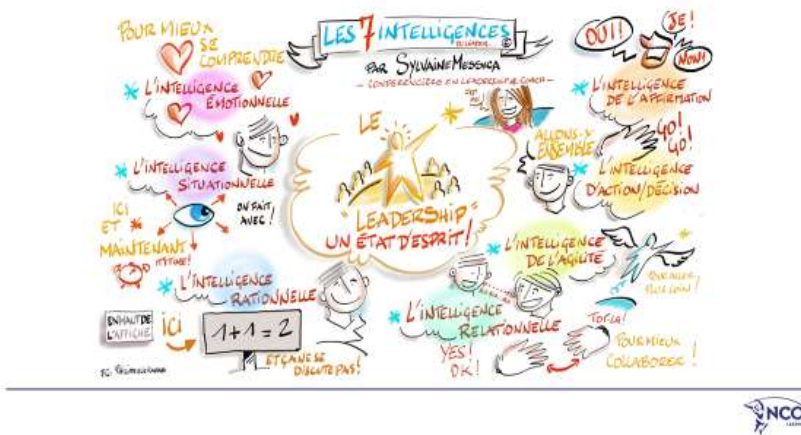 LES 7 INTELLIGENCES
DU LEADER
©
PAR SYLVAINE MESSICA
- CONFÉRENCIÈRE EN LEADERSHIP & COACH -
POUR MIEUX
SE
COMPRENDRE
* L'INTELLIGENCE
ÉMOTIONNELLE
* L'INTELLIGENCE
SITUATIONNELLE
ICI
ET *
MAINTENANT
ON FAIT
AVEC !
* L'INTELLIGENCE
RATIONNELLE
EN HAUT DE
L'AFFICHE
ICI
1+1=2
ET ÇA NE SE
DISCUTE PAS !
LE
"LEADERSHIP"
UN ÉTAT D'ESPRIT !
OUI !
JE !
NON !
* L'INTELLIGENCE
DE L'AFFIRMATION
ALLONS-Y
ENSEMBLE
GO !
GO !
* L'INTELLIGENCE
D'ACTION/DÉCISION
* L'INTELLIGENCE
DE L'AGILITÉ
POUR ALLER
PLUS LOIN !
* L'INTELLIGENCE
RELATIONNELLE
YES !
OK !
TOP-LÀ !
POUR MIEUX
COLLABORER !
NCO